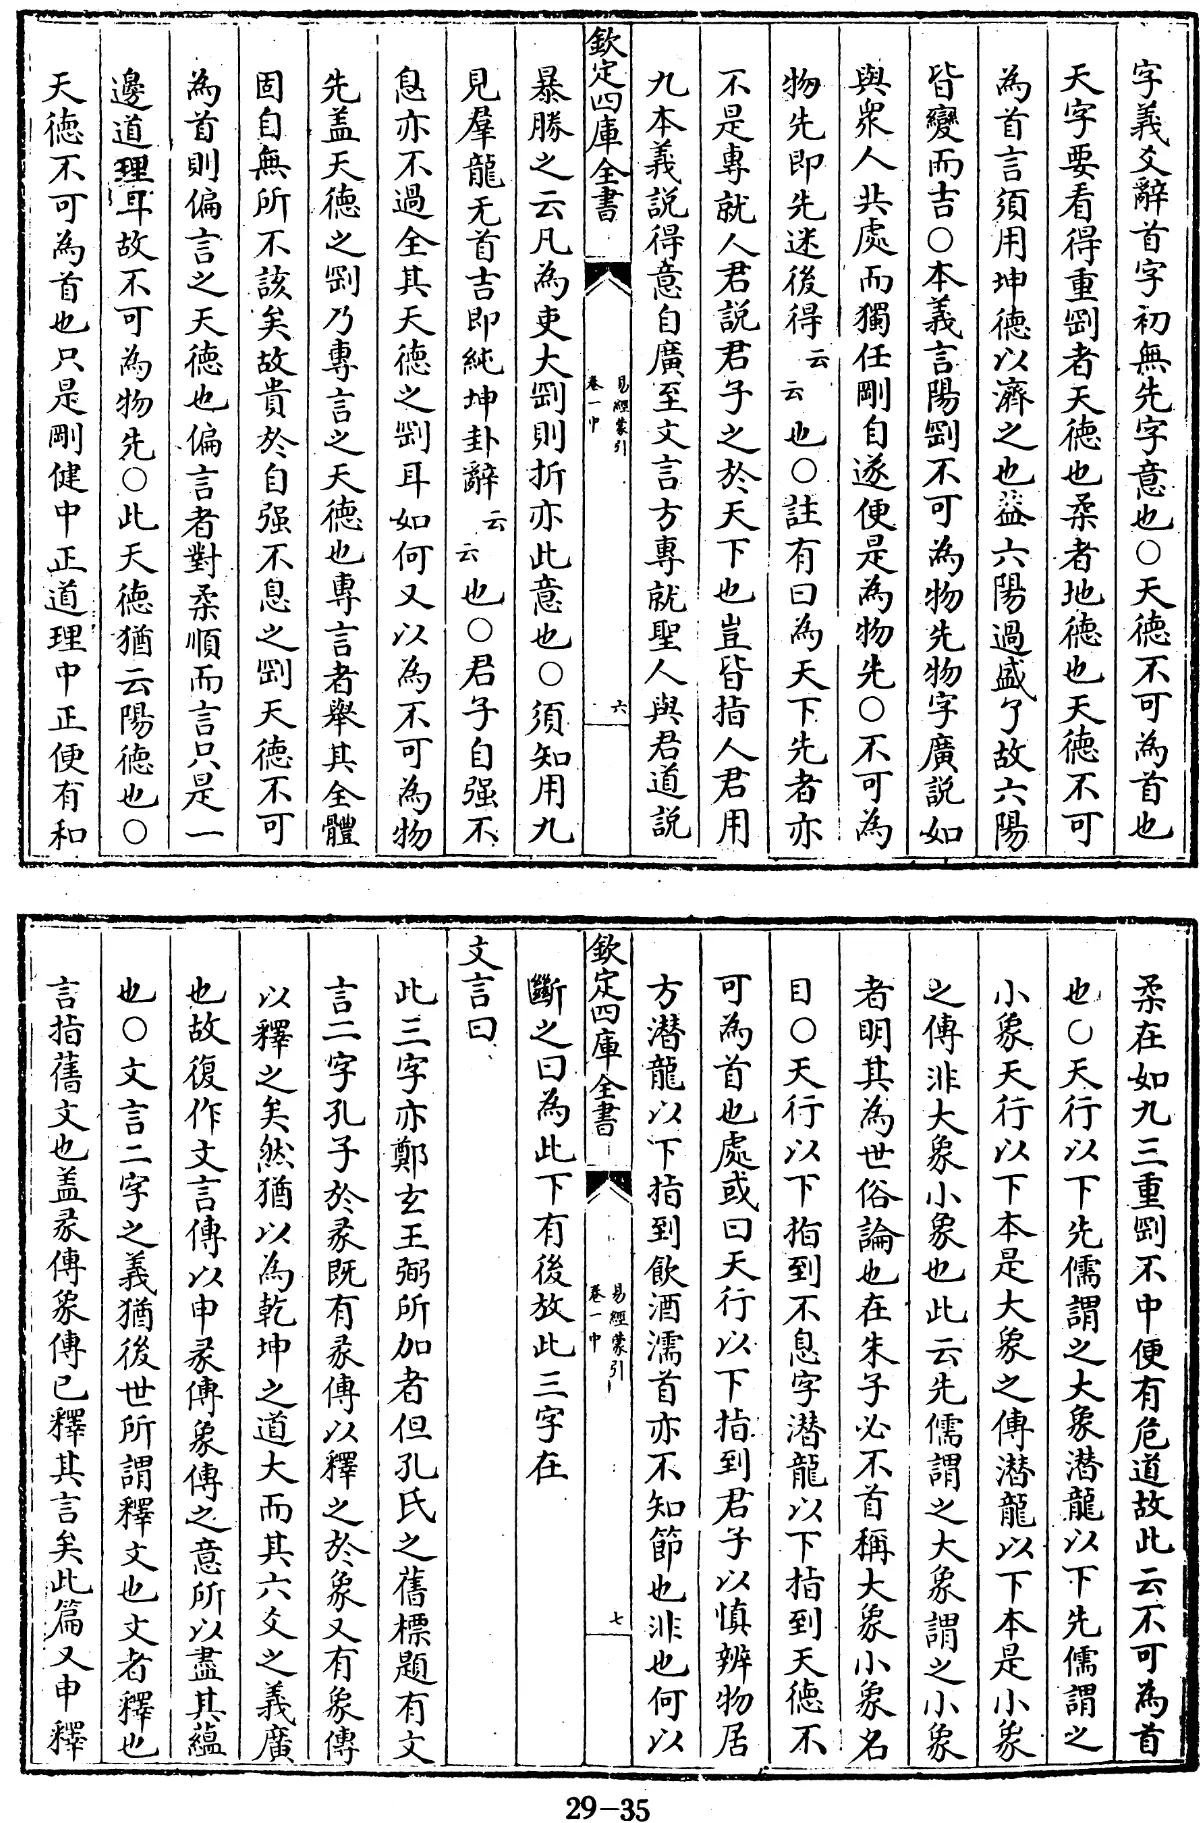 字義爻辭首字初無先字意也○天德不可為首也
天字要看得重剛者天德也柔者地德也天德不可
為首言須用坤德以濟之也益六陽過盛了故六陽
皆變而吉○本義言陽剛不可為物先物字廣説如
與衆人共處而獨任剛自遂便是為物先○不可為
物先即先迷後得云云也○註有曰為天下先者亦
不是專就人君説君子之於天下也豈皆指人君用
九本義説得意自廣至文言方專就聖人與君道説
欽定四庫全書
易經蒙引
卷一中
六
暴勝之云凡為吏大剛則折亦此意也○須知用九
見羣龍无首吉即純坤卦辭云云也○君子自强不
息亦不過全其天德之剛耳如何又以為不可為物
先盖天德之剛乃專言之天德也專言者舉其全體
固自無所不該矣故貴於自强不息之剛天德不可
為首則偏言之天德也偏言者對柔順而言只是一
邊道理耳故不可為物先○此天德猶云陽德也○
天德不可為首也只是剛健中正道理中正便有和
柔在如九三重剛不中便有危道故此云不可為首
也○天行以下先儒謂之大象潜龍以下先儒謂之
小象天行以下本是大象之傳潜龍以下本是小象
之傳非大象小象也此云先儒謂之大象謂之小象
者明其為世俗論也在朱子必不首稱大象小象名
目○天行以下指到不息字潜龍以下指到天德不
可為首也處或曰天行以下指到君子以慎辨物居
方潜龍以下指到飲酒濡首亦不知節也非也何以
欽定四庫全書
易經蒙引
卷一中
七
斷之曰為此下有後放此三字在
文言曰
此三字亦鄭玄王弼所加者但孔氏之舊標題有文
言二字孔子於彖既有彖傳以釋之於象又有象傳
以釋之矣然猶以為乾坤之道大而其六爻之義廣
也故復作文言傳以申彖傳象傳之意所以盡其藴
也○文言二字之義猶後世所謂釋文也文者釋也
言指舊文也盖彖傳象傳已釋其言矣此篇又申釋
29-35